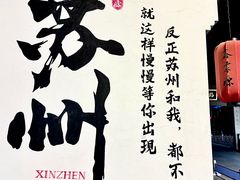 苏州
XINZHEN
反正苏州和我，都不
就这样慢慢等你出现